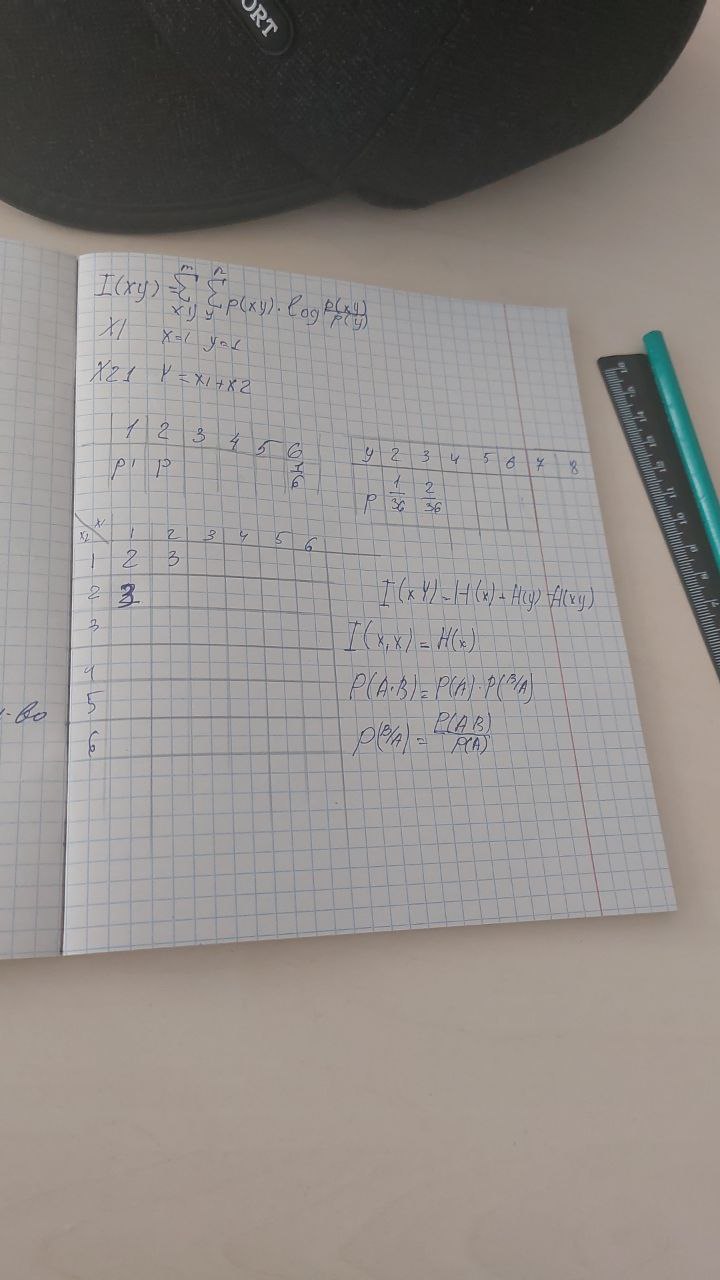 ORT
I(xy) = m n
Σ Σ p(xy) · log p(xy)/p(y)
x=1 y=1
X1
X21 Y = x1 + x2
1 2 3 4 5 6
P' P 1/6
y 2 3 4 5 6 7 8
P 1/36 2/36
x2 x1 1 2 3 4 5 6
1 2 3
2 3
3
4
5
6
I(xY) = H(x) + H(y) - H(xy)
I(x,x) = H(x)
P(A·B) = P(A)·P(B/A)
P(B/A) = P(AB)/P(A)